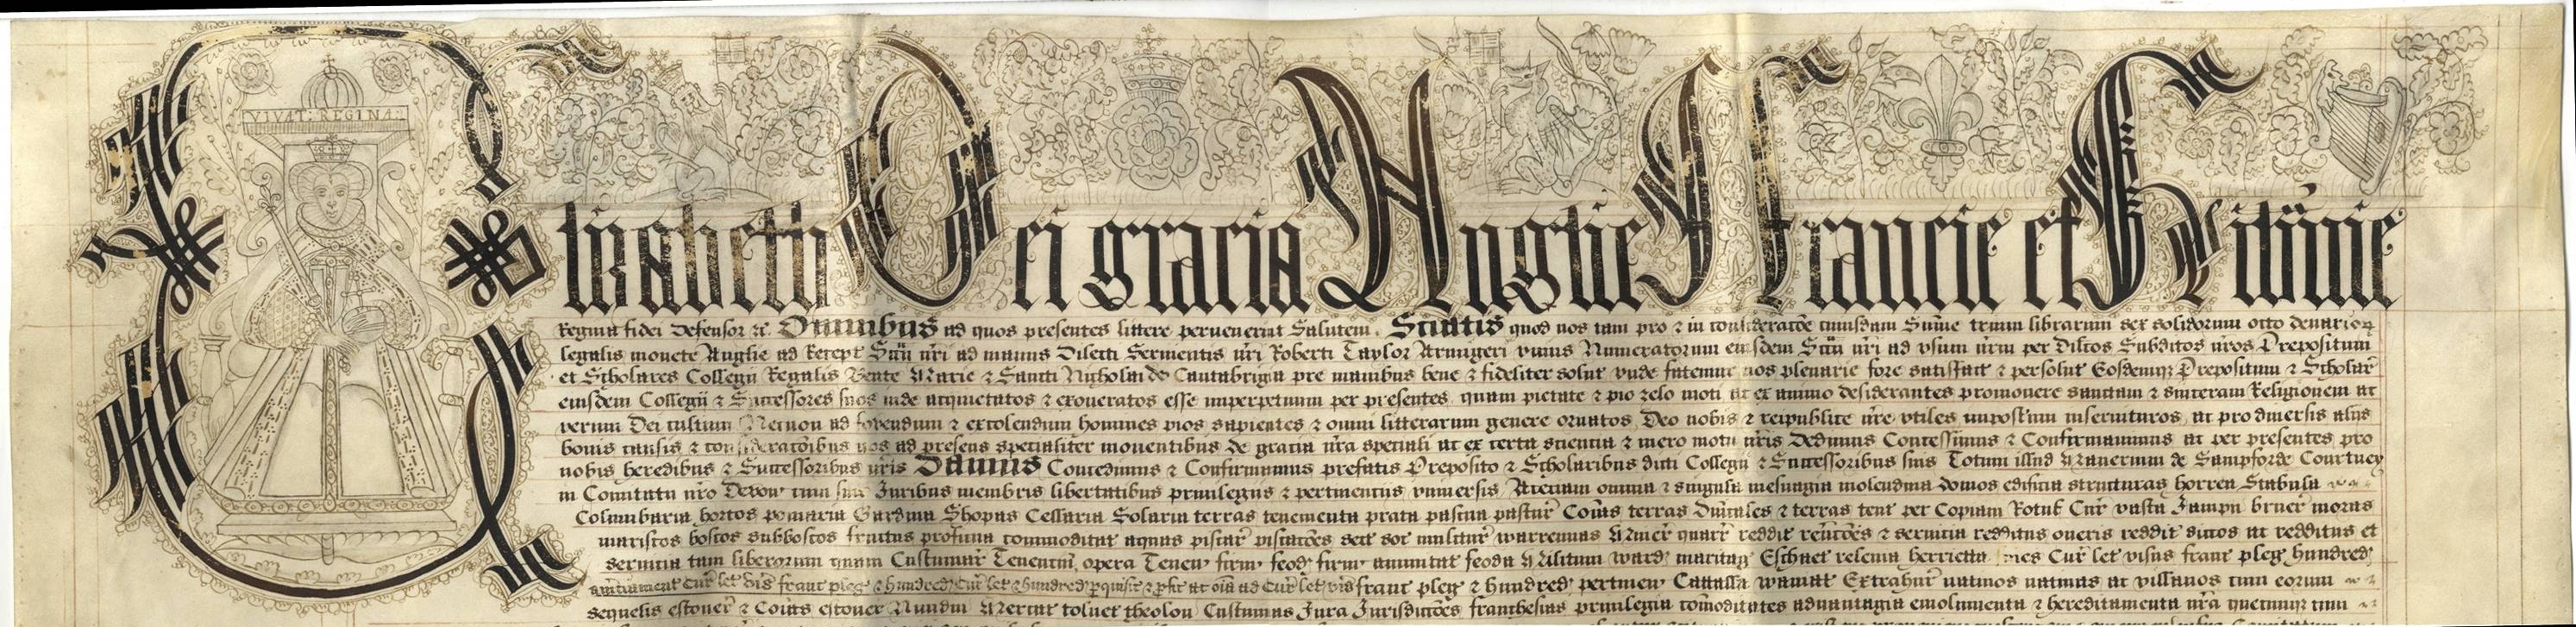 VIVAT: REGINA:
Elizabeth Dei gracia Anglie Francie et Hib̄nie
Regina fidei Defensor &c̄. Omnibus ad quos presentes littere pervenerint Salutem. Sciatis quod nos tam pro & in consideracōe cuiusdam Sum̄e trium librarum sex solidorum octo denariorꝫ
legalis monete Anglie ad Recept̄ Sc̄ii n̄ri ad manus Dilecti Servientis n̄ri Roberti Taylor Armigeri unius Numeratorum eiusdem Sc̄ii n̄ri ad usum n̄rm per Dil̄cos Subditos n̄ros Prepositum
et Scholares Collegii Regalis Beate Marie & Sancti Nicholai de Cantabrigia pre manibus bene & fideliter solut̄ unde fatemur nos plenarie fore satisfact̄ & persolut̄ Eosdemqꝫ Prepositum & Scholar̄
eiusdem Collegii & Successores suos inde acquietatos & exoneratos esse imperpetuum per presentes, quam pietate & pio zelo moti ac ex animo desiderantes promovere sanctam & sinceram Religionem ac
verum Dei cultum Necnon ad fovendum & extolendum homines pios sapientes & omni litterarum genere ornatos, Deo nobis & reipublice n̄re utiles impost̄um inservituros, ac pro diversis aliis
bonis causis & consideracōibus nos ad presens specialiter moventibus de gracia n̄ra speciali ac ex certa sciencia & mero motu n̄ris Dedimus Concessimus & Confirmavimus ac per presentes pro
nobis heredibus & Successoribus n̄ris Damus Concedimus & Confirmamus prefatis Preposito & Scholaribus dicti Collegii & Successoribus suis Totum illud Manerium de Sampforde Courtney
in Comitatu n̄ro Devon̄ cum suis Juribus membris libertatibus privilegiis & pertinenciis universis, Aceciam omnia & singula mesuagia molendina domos edificia structuras horrea Stabula
Columbaria hortos pomaria Gardina Shopas Cellaria Solaria terras tenementa prata pascua pastur̄ Cōias terras Dn̄icales & terras tent̄ per Copiam Rotul̄ Cur̄ vasta Jampn̄ bruer̄ moras
mariscos boscos subboscos fructus proficua commoditat̄ aquas piscar̄ piscacōes sect̄ soc̄ multur̄ warrennas Miner̄ quarr̄ reddit̄ revercōes & servicia redditus oneris reddit̄ siccos ac redditus et
servicia tam liberorum quam Custumar̄ Tenencium, opera Tenen̄ firm̄ feod̄ firm̄ annuitat̄ feoda Militum ward̄ maritaḡ Eschaet̄ relevia herrietta fines Cur̄ let̄ visus franc̄ pleḡ hundred̄
franc̄ pleḡ & hundred̄ pertinen̄ Catalla waiviat̄ Extrahur̄ nativos nativas ac villanos cum eorum
sequelis estover̄ & Cōias estover̄ Nundin̄ Mercat̄ tolnet̄ theolon̄ Custumas Jura Jurisdiccōes franchesias privilegia com̄oditates advantagia emolumenta & hereditamenta n̄ra quecumqꝫ cum